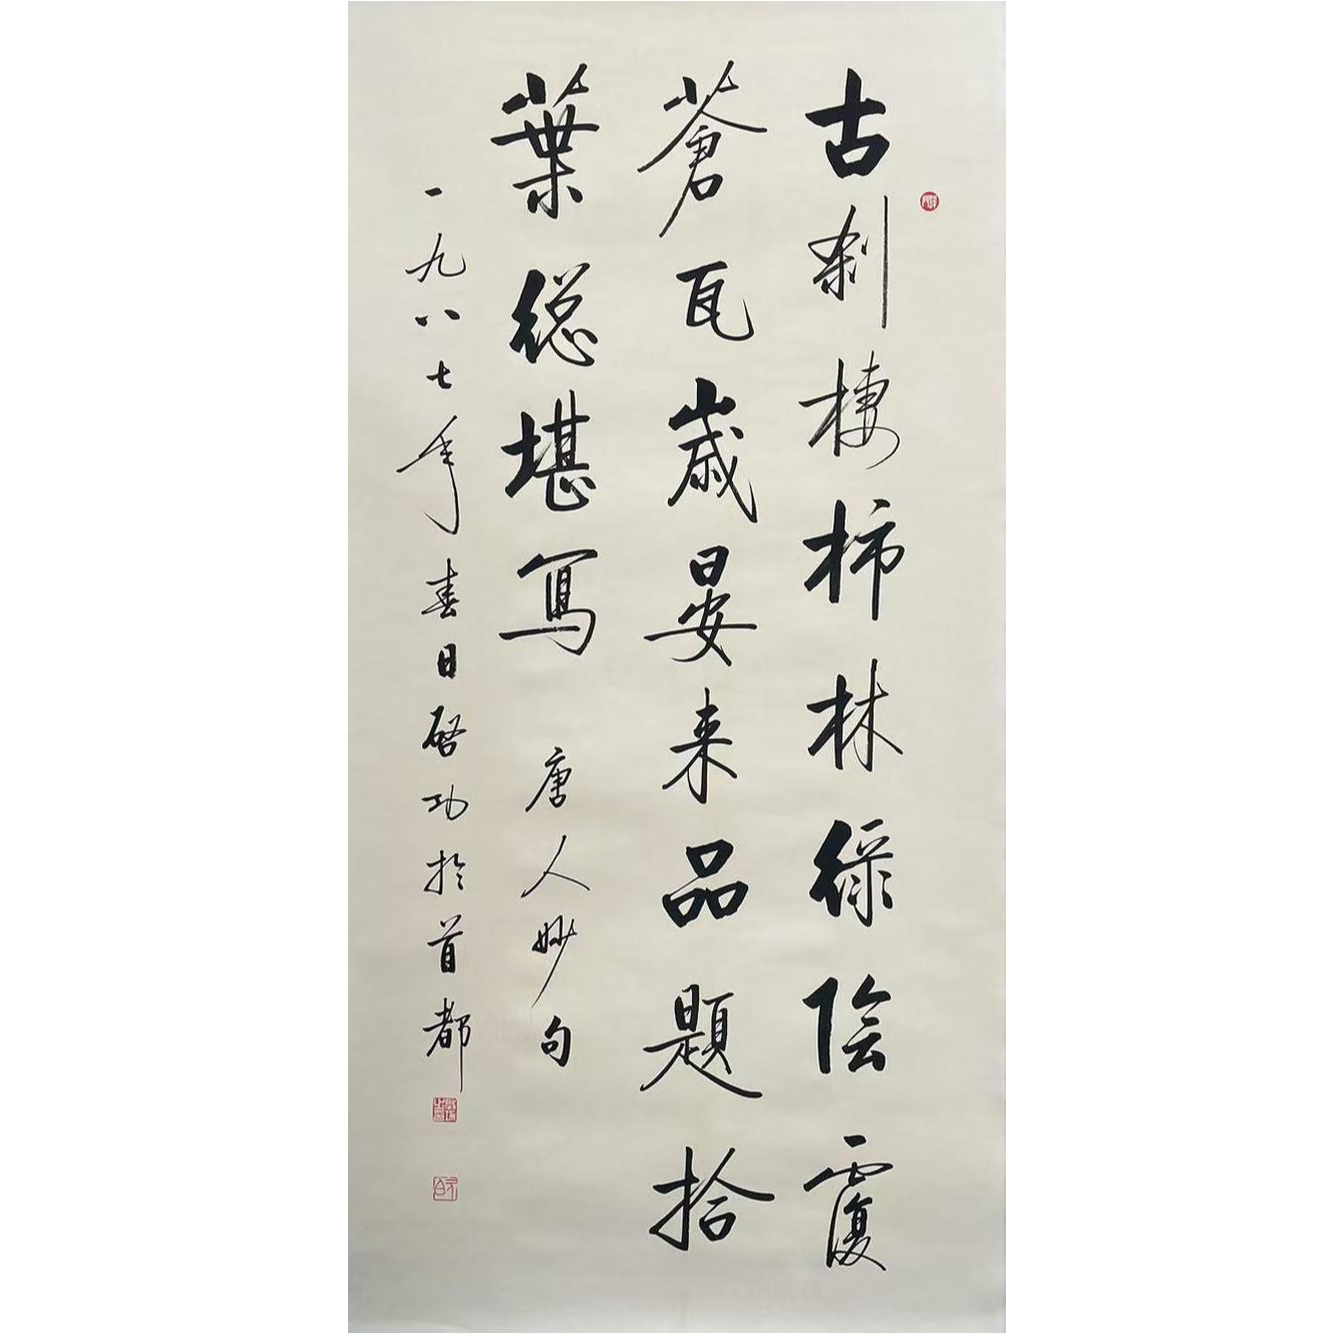 古刹棲柿林綠陰覆
蒼瓦歲晏来品題拾
葉總堪寫 唐人妙句
一九八七年春日啓功於首都